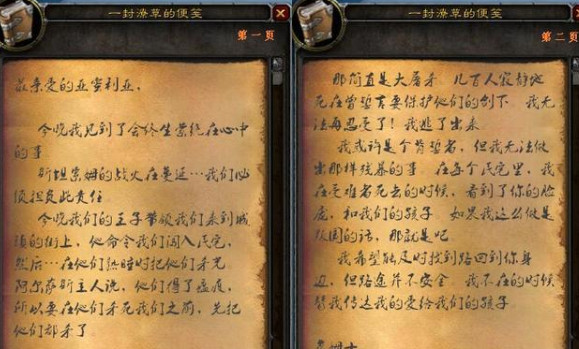 一封潦草的便笺
第一页
最亲爱的亚蜜利亚，
今晚我见到了会终生萦绕在心中
的事
斯坦索姆的战火在蔓延…我们必
须担负此责任
今晚我们的王子带领我们来到城
镇的街上，他命令我们闯入民宅，
然后…在他们熟睡时把他们杀死
阿尔萨斯主人说，他们得了瘟疫，
所以要在他们杀死我们之前，先把
他们都杀了
一封潦草的便笺
第二页
那简直是大屠杀 几百人寂静地
死在曾誓言要保护他们的剑下 我无
法再忍受了！我逃了出来
我或许是个背誓者，但我无法做
出那样残暴的事 在每个民宅里，我
在受难者死去的时候，看到了你的脸
庞，和我们的孩子 如果我这么做是
叛国的话，那就是吧
我希望能及时找到路回到你身
边，但路途并不安全 我不在的时候
替我传达我的爱给我们的孩子